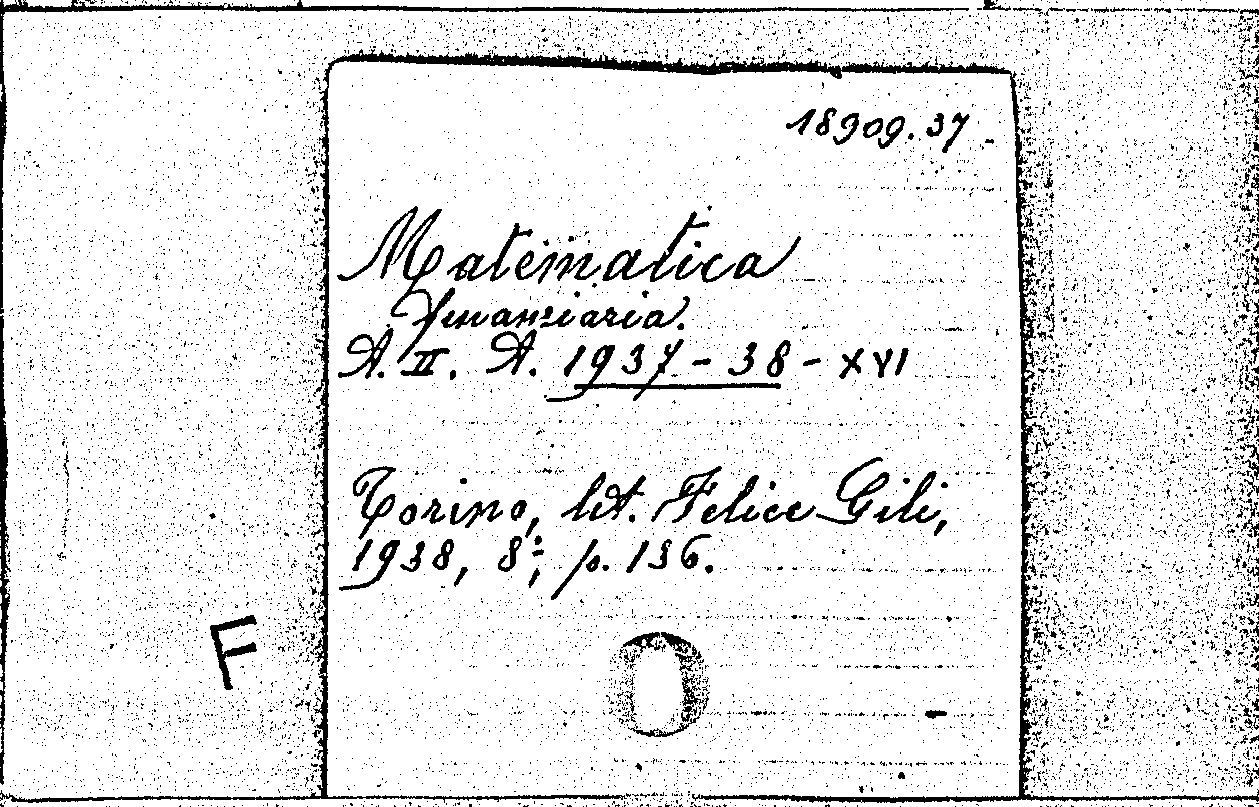 18909.37.
Matematica
finanziaria.
A. II. A. 1937-38-XVI
Torino, lit. Felice Gili,
1938, 8°, p. 136.
F